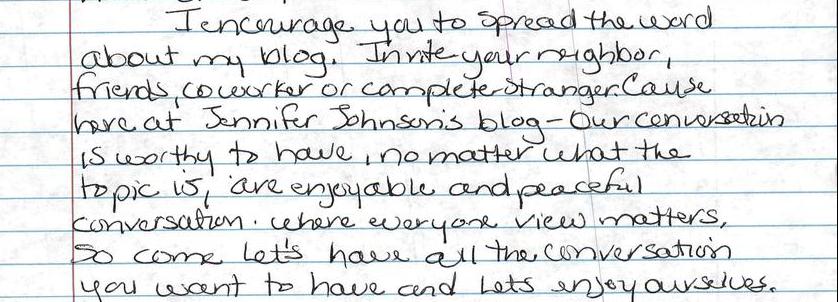 I encourage you to spread the word
about my blog. Invite your neighbor,
friends, coworker or complete stranger. Cause
here at Jennifer Johnson's blog - Our conversation
is worthy to have, no matter what the
topic is, are enjoyable and peaceful
conversation. where everyone view matters,
So come Let's have all the conversation
you want to have and Lets enjoy ourselves.